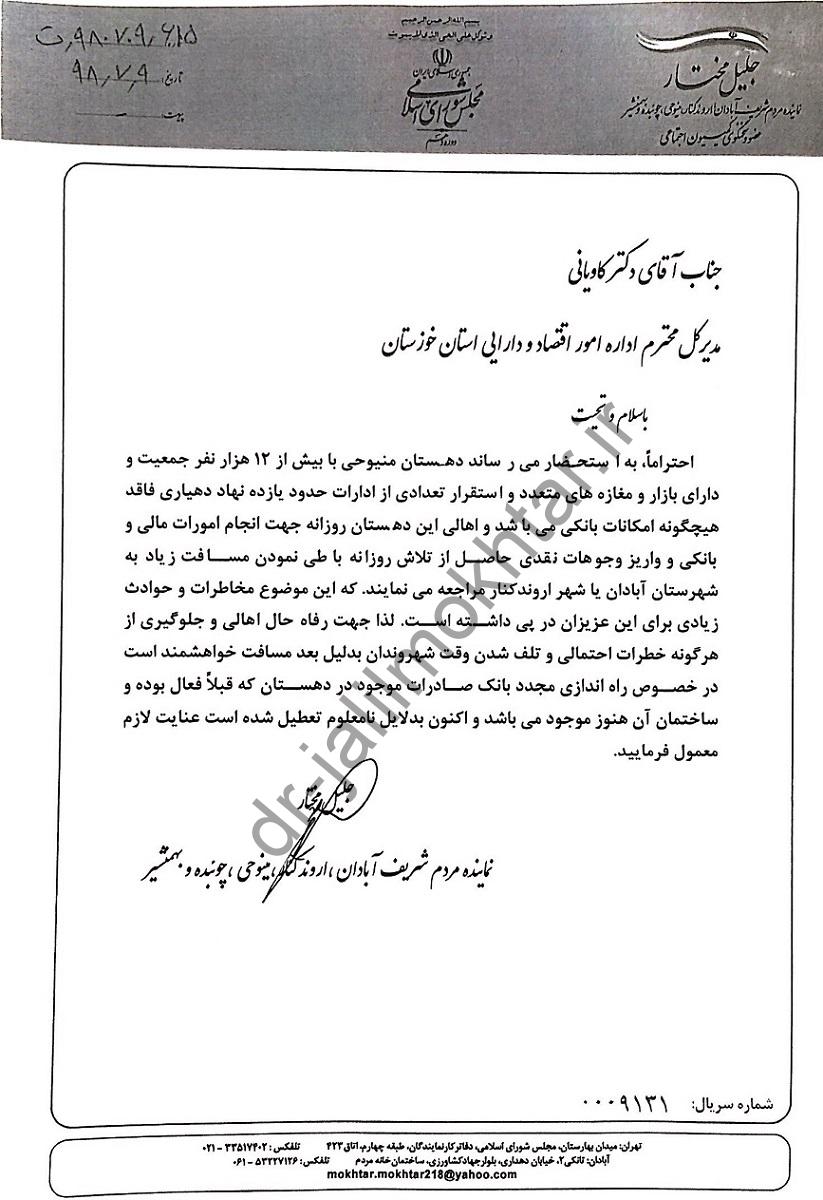 بسم الله الرحمن الرحیم
و توکل علی الحی الذی لا یموت
جمهوری اسلامی ایران
مجلس شورای اسلامی
دوره دهم
جلیل مختار
نماینده مردم شریف آبادان، اروندکنار، مینوحی، چوئبده و بهمنشیر
عضو و سخنگوی کمیسیون اجتماعی
۹۸۰۷۰۹٫۶۱۵٫ت
تاریخ: ۹۸٫۷٫۹
پیوست:
جناب آقای دکتر کاویانی
مدیرکل محترم اداره امور اقتصاد و دارایی استان خوزستان
باسلام و تحیت
احتراماً، به استحضار می رساند دهستان منیوحی با بیش از ۱۲ هزار نفر جمعیت و
دارای بازار و مغازه های متعدد و استقرار تعدادی از ادارات حدود یازده نهاد دهیاری فاقد
هیچگونه امکانات بانکی می باشد و اهالی این دهستان روزانه جهت انجام امورات مالی و
بانکی و واریز وجوهات نقدی حاصل از تلاش روزانه با طی نمودن مسافت زیاد به
شهرستان آبادان یا شهر اروندکنار مراجعه می نمایند. که این موضوع مخاطرات و حوادث
زیادی برای این عزیزان در پی داشته است. لذا جهت رفاه حال اهالی و جلوگیری از
هرگونه خطرات احتمالی و تلف شدن وقت شهروندان بدلیل بعد مسافت خواهشمند است
در خصوص راه اندازی مجدد بانک صادرات موجود در دهستان که قبلاً فعال بوده و
ساختمان آن هنوز موجود می باشد و اکنون بدلایل نامعلوم تعطیل شده است عنایت لازم
معمول فرمایید.
جلیل مختار
نماینده مردم شریف آبادان، اروندکنار، مینوحی، چوئبده و بهمنشیر
dr-jalilmokhtar.ir
شماره سریال: ۰۰۰۹۱۳۱
تهران: میدان بهارستان، مجلس شورای اسلامی، دفاتر کار نمایندگان، طبقه چهارم، اتاق ۴۲۳ تلفکس: ۳۳۵۱۷۴۰۲ - ۰۲۱
آبادان: تانکی۲، خیابان دهداری، بلوار جهاد کشاورزی، ساختمان خانه مردم تلفکس: ۵۳۲۲۷۱۲۶ - ۰۶۱
mokhtar.mokhtar218@yahoo.com